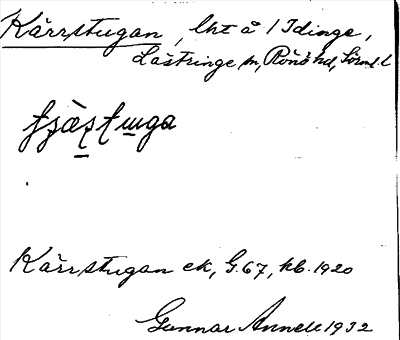 Kärrstugan, lht å / Idinge,
Lästringe sn, Rönö hd, Sörml. l
Kärrstugan ek, G. 67, kb. 1920
Gunnar Annell 1932